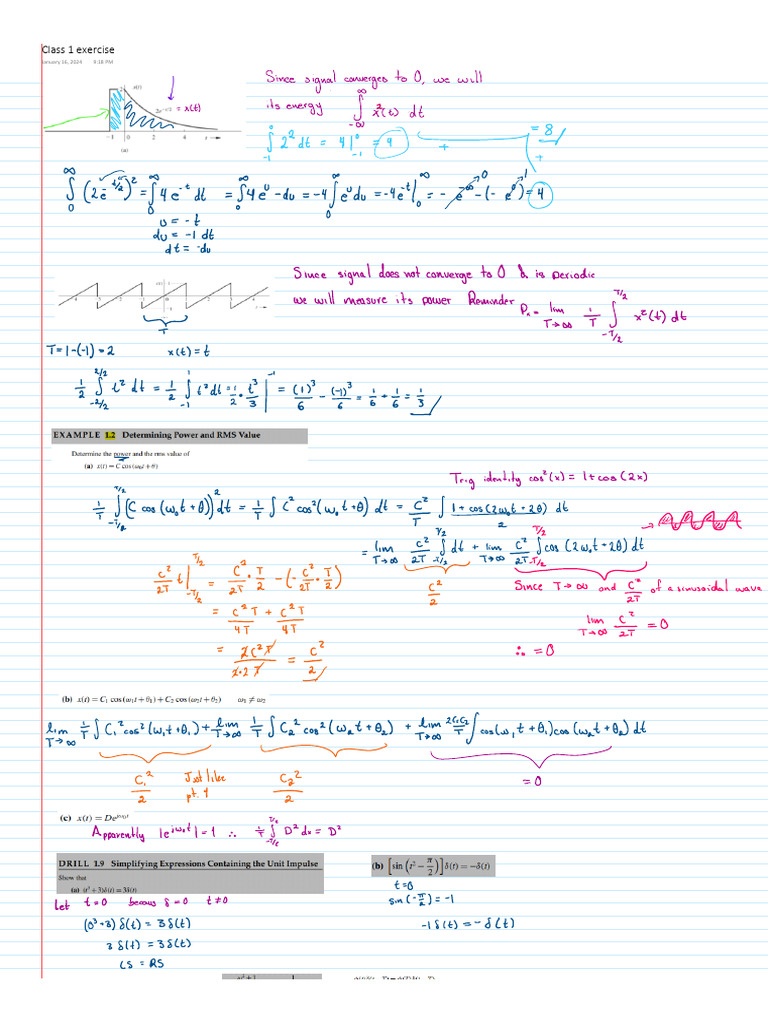 Class 1 exercise
January 16, 2024 9:18 PM
2 x(t)
2e^(-t/2) = x(t)
-1 0 2 4 t →
(a)
Since signal converges to 0, we will
its energy ∫_(-∞)^∞ x²(t) dt
∫_(-1)^0 2² dt = 4|_(-1)^0 = 4
+ = 8
+
∫_0^∞ (2e^(-t/2))² = ∫_0^∞ 4e^(-t) dt = ∫_0^∞ 4e^u -du = -4∫_0^∞ e^u du = -4e^(-t)|_0^∞ = - e^(-∞) 0 - (- e^0) 1 = 4
u = -t
du = -1 dt
dt = -du
Since signal does not converge to 0 & is periodic
we will measure its power Reminder P_x = lim_(T→∞) 1/T ∫_(-T/2)^(T/2) x²(t) dt
T
T = 1-(-1) = 2 x(t) = t
1/2 ∫_(-2/2)^(2/2) t² dt = 1/2 ∫_(-1)^1 t² dt = 1/2 · t³/3 |^(-1) = (1)³/6 - (-1)³/6 = 1/6 + 1/6 = 1/3
EXAMPLE 1.2 Determining Power and RMS Value
Determine the power and the rms value of
(a) x(t) = C cos(ω₀t + θ)
Trig identity cos²(x) = 1+cos(2x)
1/T ∫_(-T/2)^(T/2) (C cos(ω₀t + θ))² dt = 1/T ∫ C² cos²(ω₀t + θ) dt = C²/T ∫ (1+cos(2ω₀t + 2θ))/2 dt
= lim_(T→∞) C²/2T ∫_(-T/2)^(T/2) dt + lim_(T→∞) C²/2T ∫_(-T/2)^(T/2) cos(2ω₀t + 2θ) dt
C²/2T t|_(-T/2)^(T/2) = C²/2T · T/2 - (-C²/2T · T/2)
C²/2
Since T→∞ and C²/2T of a sinusoidal wave
= C²T/4T + C²T/4T
lim_(T→∞) C²/2T = 0
= 2C²T/2·2T = C²/2
∴ = 0
(b) x(t) = C₁ cos(ω₁t + θ₁) + C₂ cos(ω₂t + θ₂) ω₁ ≠ ω₂
lim_(T→∞) 1/T ∫ C₁² cos²(ω₁t + θ₁) + lim_(T→∞) 1/T ∫ C₂² cos²(ω₂t + θ₂) + lim_(T→∞) 2C₁C₂/T ∫ cos(ω₁t + θ₁) cos(ω₂t + θ₂) dt
C₁²/2 Just like pt. 1 C₂²/2 = 0
(c) x(t) = De^(jω₀t)
Apparently |e^(jω₀t)| = 1 ∴ 1/T ∫_(-T/2)^(T/2) D² dx = D²
DRILL 1.9 Simplifying Expressions Containing the Unit Impulse
Show that
(a) (t³ + 3)δ(t) = 3δ(t)
Let t = 0 becaus δ = 0 t ≠ 0
(0³ + 3) δ(t) = 3 δ(t)
3 δ(t) = 3 δ(t)
LS = RS
(b) [sin(t² - π/2)] δ(t) = -δ(t)
t = 0
sin(-π/2) = -1
-1 δ(t) = -δ(t)